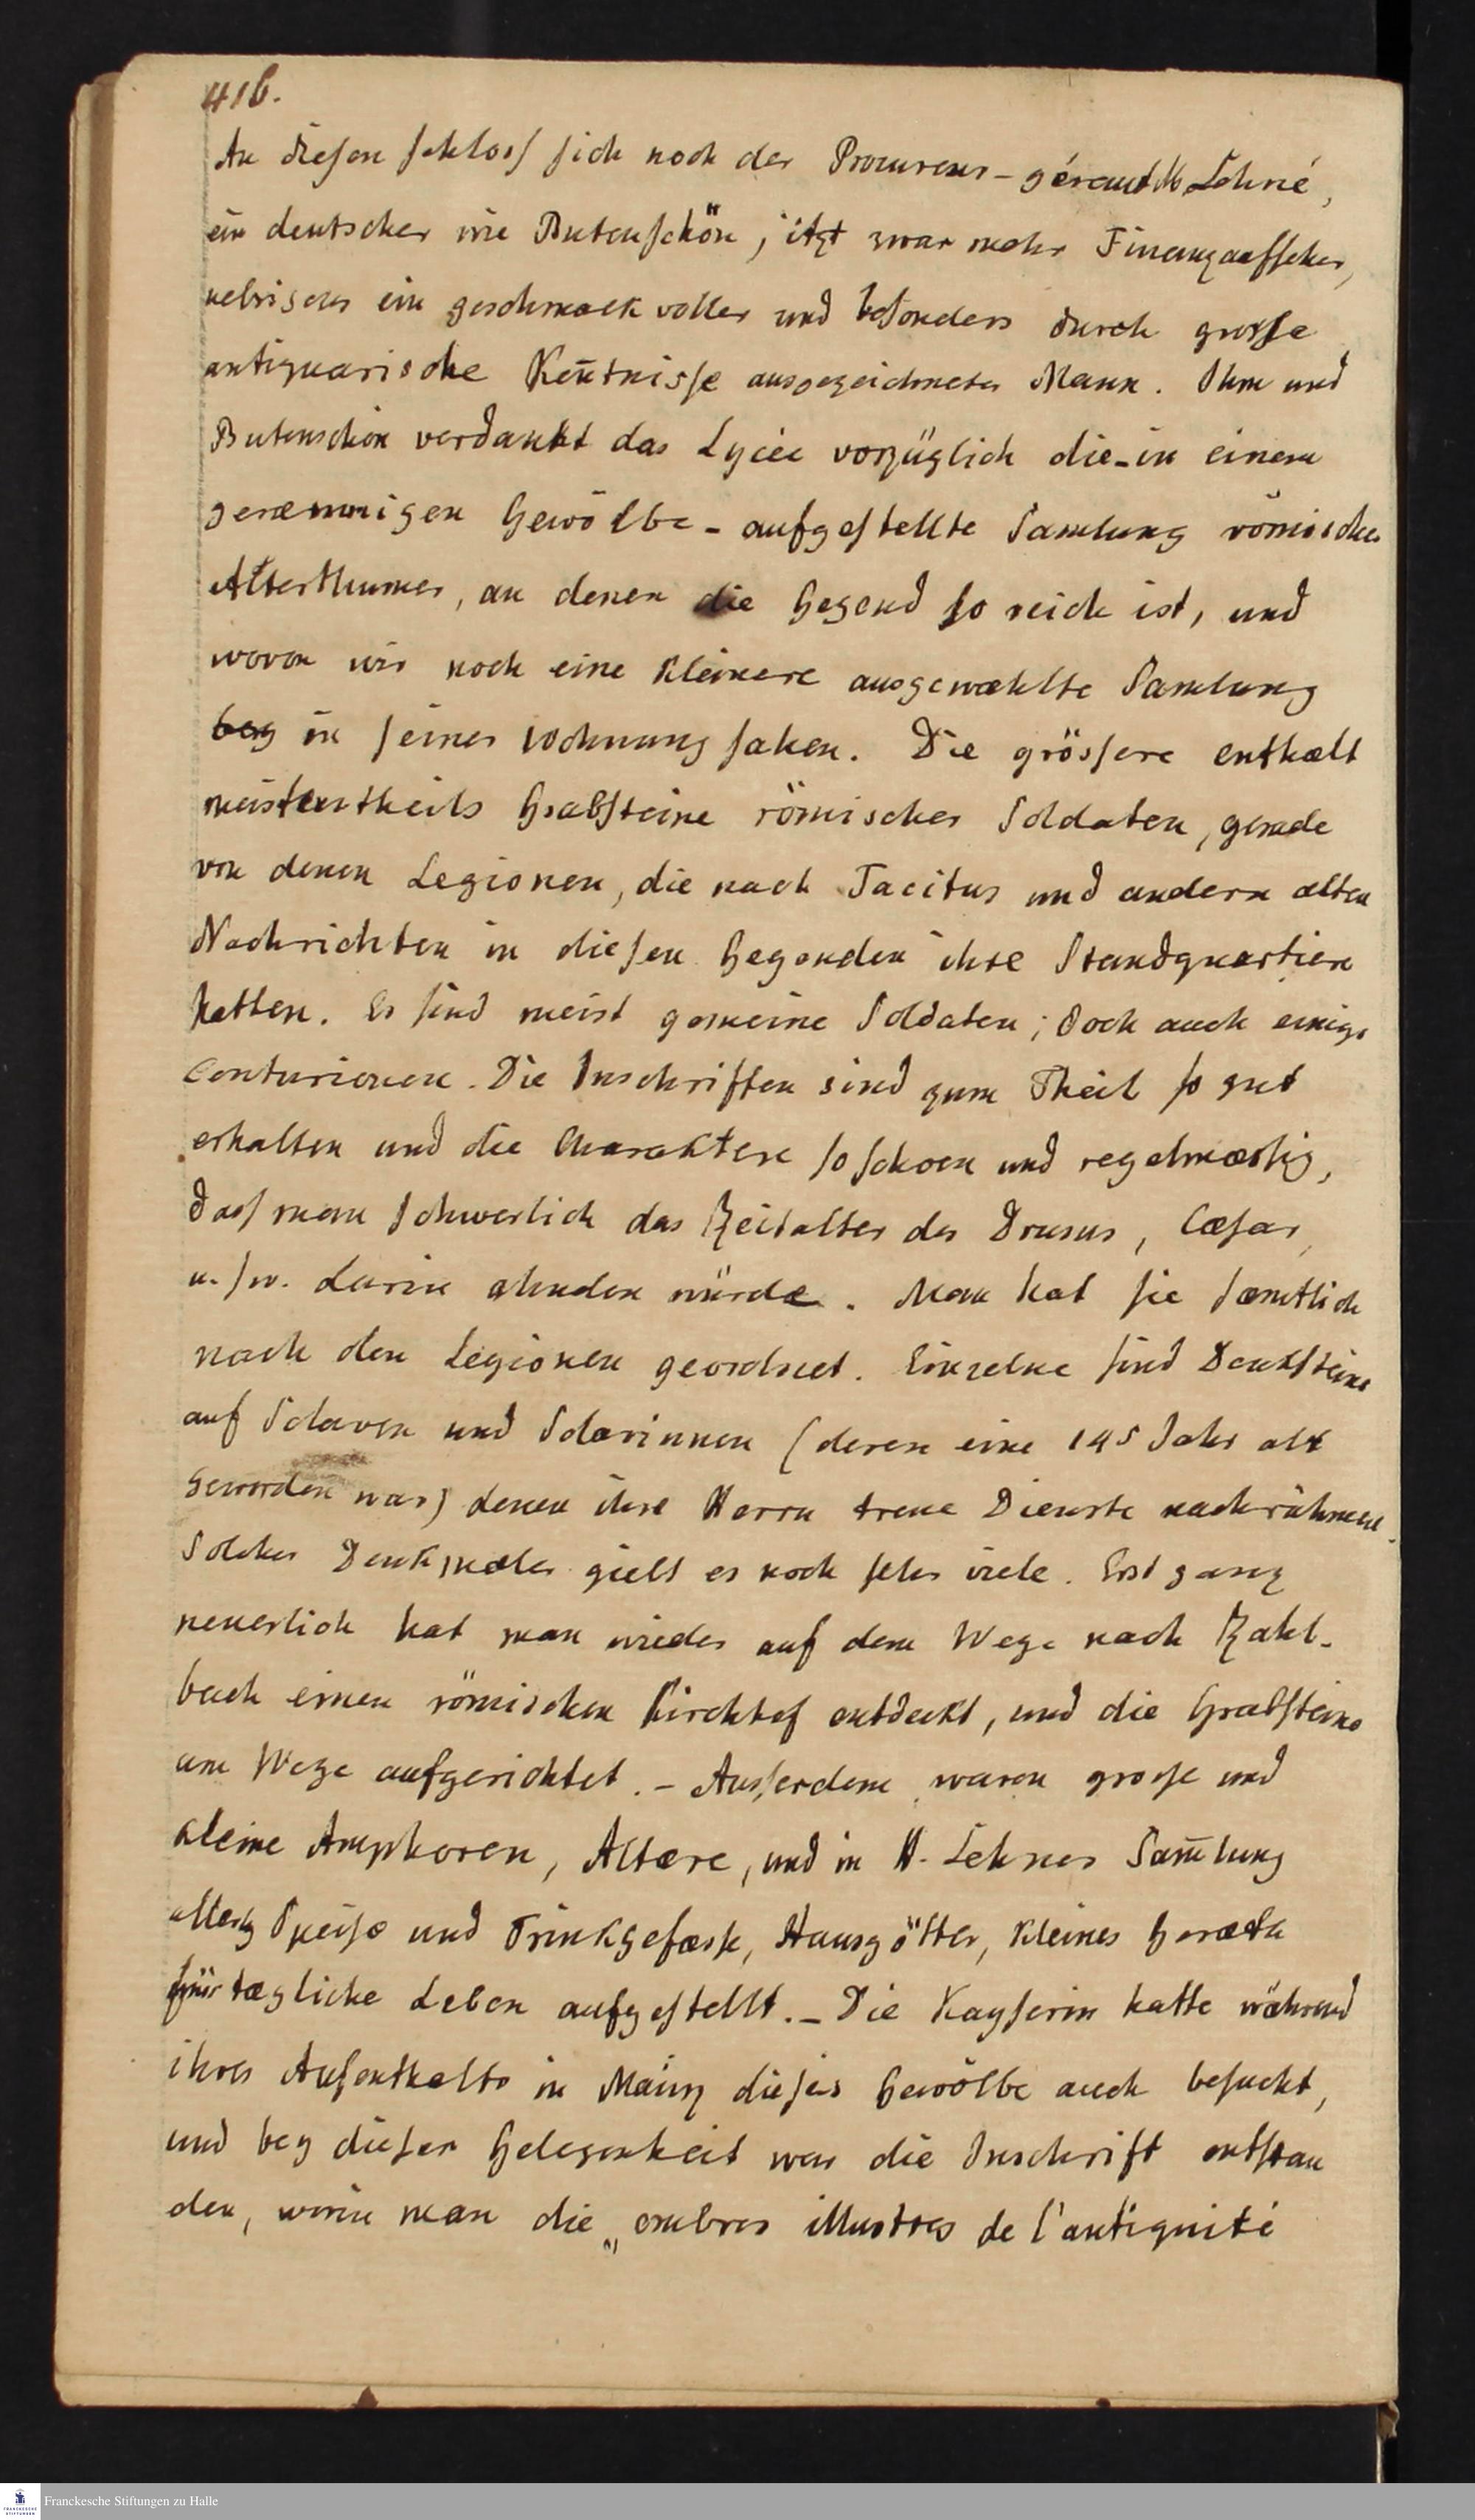 416.
An diesen schloss sich noch der Procureur-gérant H Lehné,
ein deutscher wie Butenschön, itzt zwar mehr Finanzaufseher,
uebrigens ein geschmackvoller und besonders durch grosse
antiquarische Keñtnisse ausgezeichneter Mann. Ihm und
Butenschön verdankt das Lycée vorzüglich die-in einem
geræumigen Gewölbe-aufgestellte Samlung römischer
Alterthümer, an denen die Gegend so reich ist, und
wovon wir noch eine kleinere ausgewæhlte Samlung
bey in seiner Wohnung sahen. Die grössere enthælt
meistentheils Grabsteine römischer Soldaten, gerade
von denen Legionen, die nach Tacitus und andern alten
Nachrichten in diesen Gegenden ihre Standquartiere
hatten. Es sind meist gemeine Soldaten; doch auch einige
Centurionen. Die Inschriften sind zum Theil so gut
erhalten und die Charaktere so schoen und regelmæssig,
dass man schwerlich das Zeitalter des Drusus, Cæsar,
u. sw. darin ahnden würde. Man hat sie sæmtlich
nach den Legionen geordnet. Einzelne sind Denksteine
auf Sclaven und Sclavinnen (deren eine 145 Jahr alt
geworden war) denen ihre Herrn treue Dienste nachrühmen.
Solcher Denkmæler giebt es noch sehr viele. Erst ganz
neuerlich hat man wieder auf dem Wege nach Zahl-
bach einen römischen Kirchhof entdeckt, und die Grabsteine
am Wege aufgerichtet. - Ausserdem waren grosse und
kleine Amphoren, Altære, und in H. Lehnes Sam̃lung
allerley Speise und Trinkgefæsse, Hausgötter, kleines Geræthe
fürs tægliche Leben aufgestellt. - Die Kayserin hatte während
ihres Aufenthalts in Mainz dieses Gewölbe auch besucht,
und bey dieser Gelegenheit war die Inschrift entstan
den, worin man die „ombres illustres de l'antiquité
Franckesche Stiftungen zu Halle